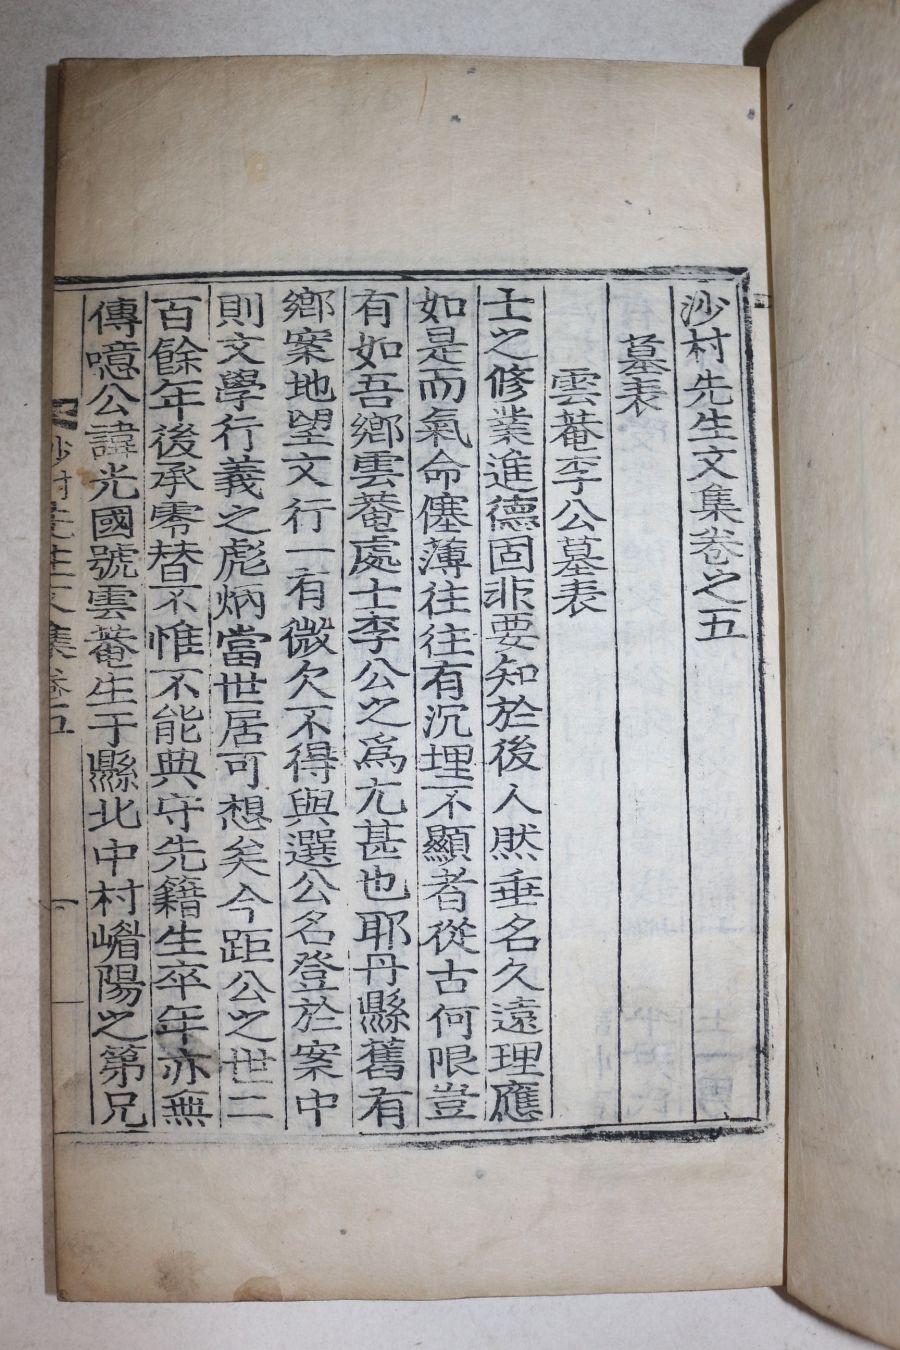 沙村先生文集卷之五
墓表
雲菴李公墓表
士之修業進德固非要知於後人然垂名久遠理應
如是而氣命僿薄往往有沉埋不顯者從古何限豈
有如吾鄉雲菴處士李公之爲尤甚也耶丹縣舊有
鄉案地望文行一有微欠不得與選公名登於案中
則文學行義之彪炳當世居可想矣今距公之世二
百餘年後承零替不惟不能典守先籍生卒年亦無
傳噫公諱光國號雲菴生于縣北中村嵋陽之第兄
沙村先生文集卷五
一